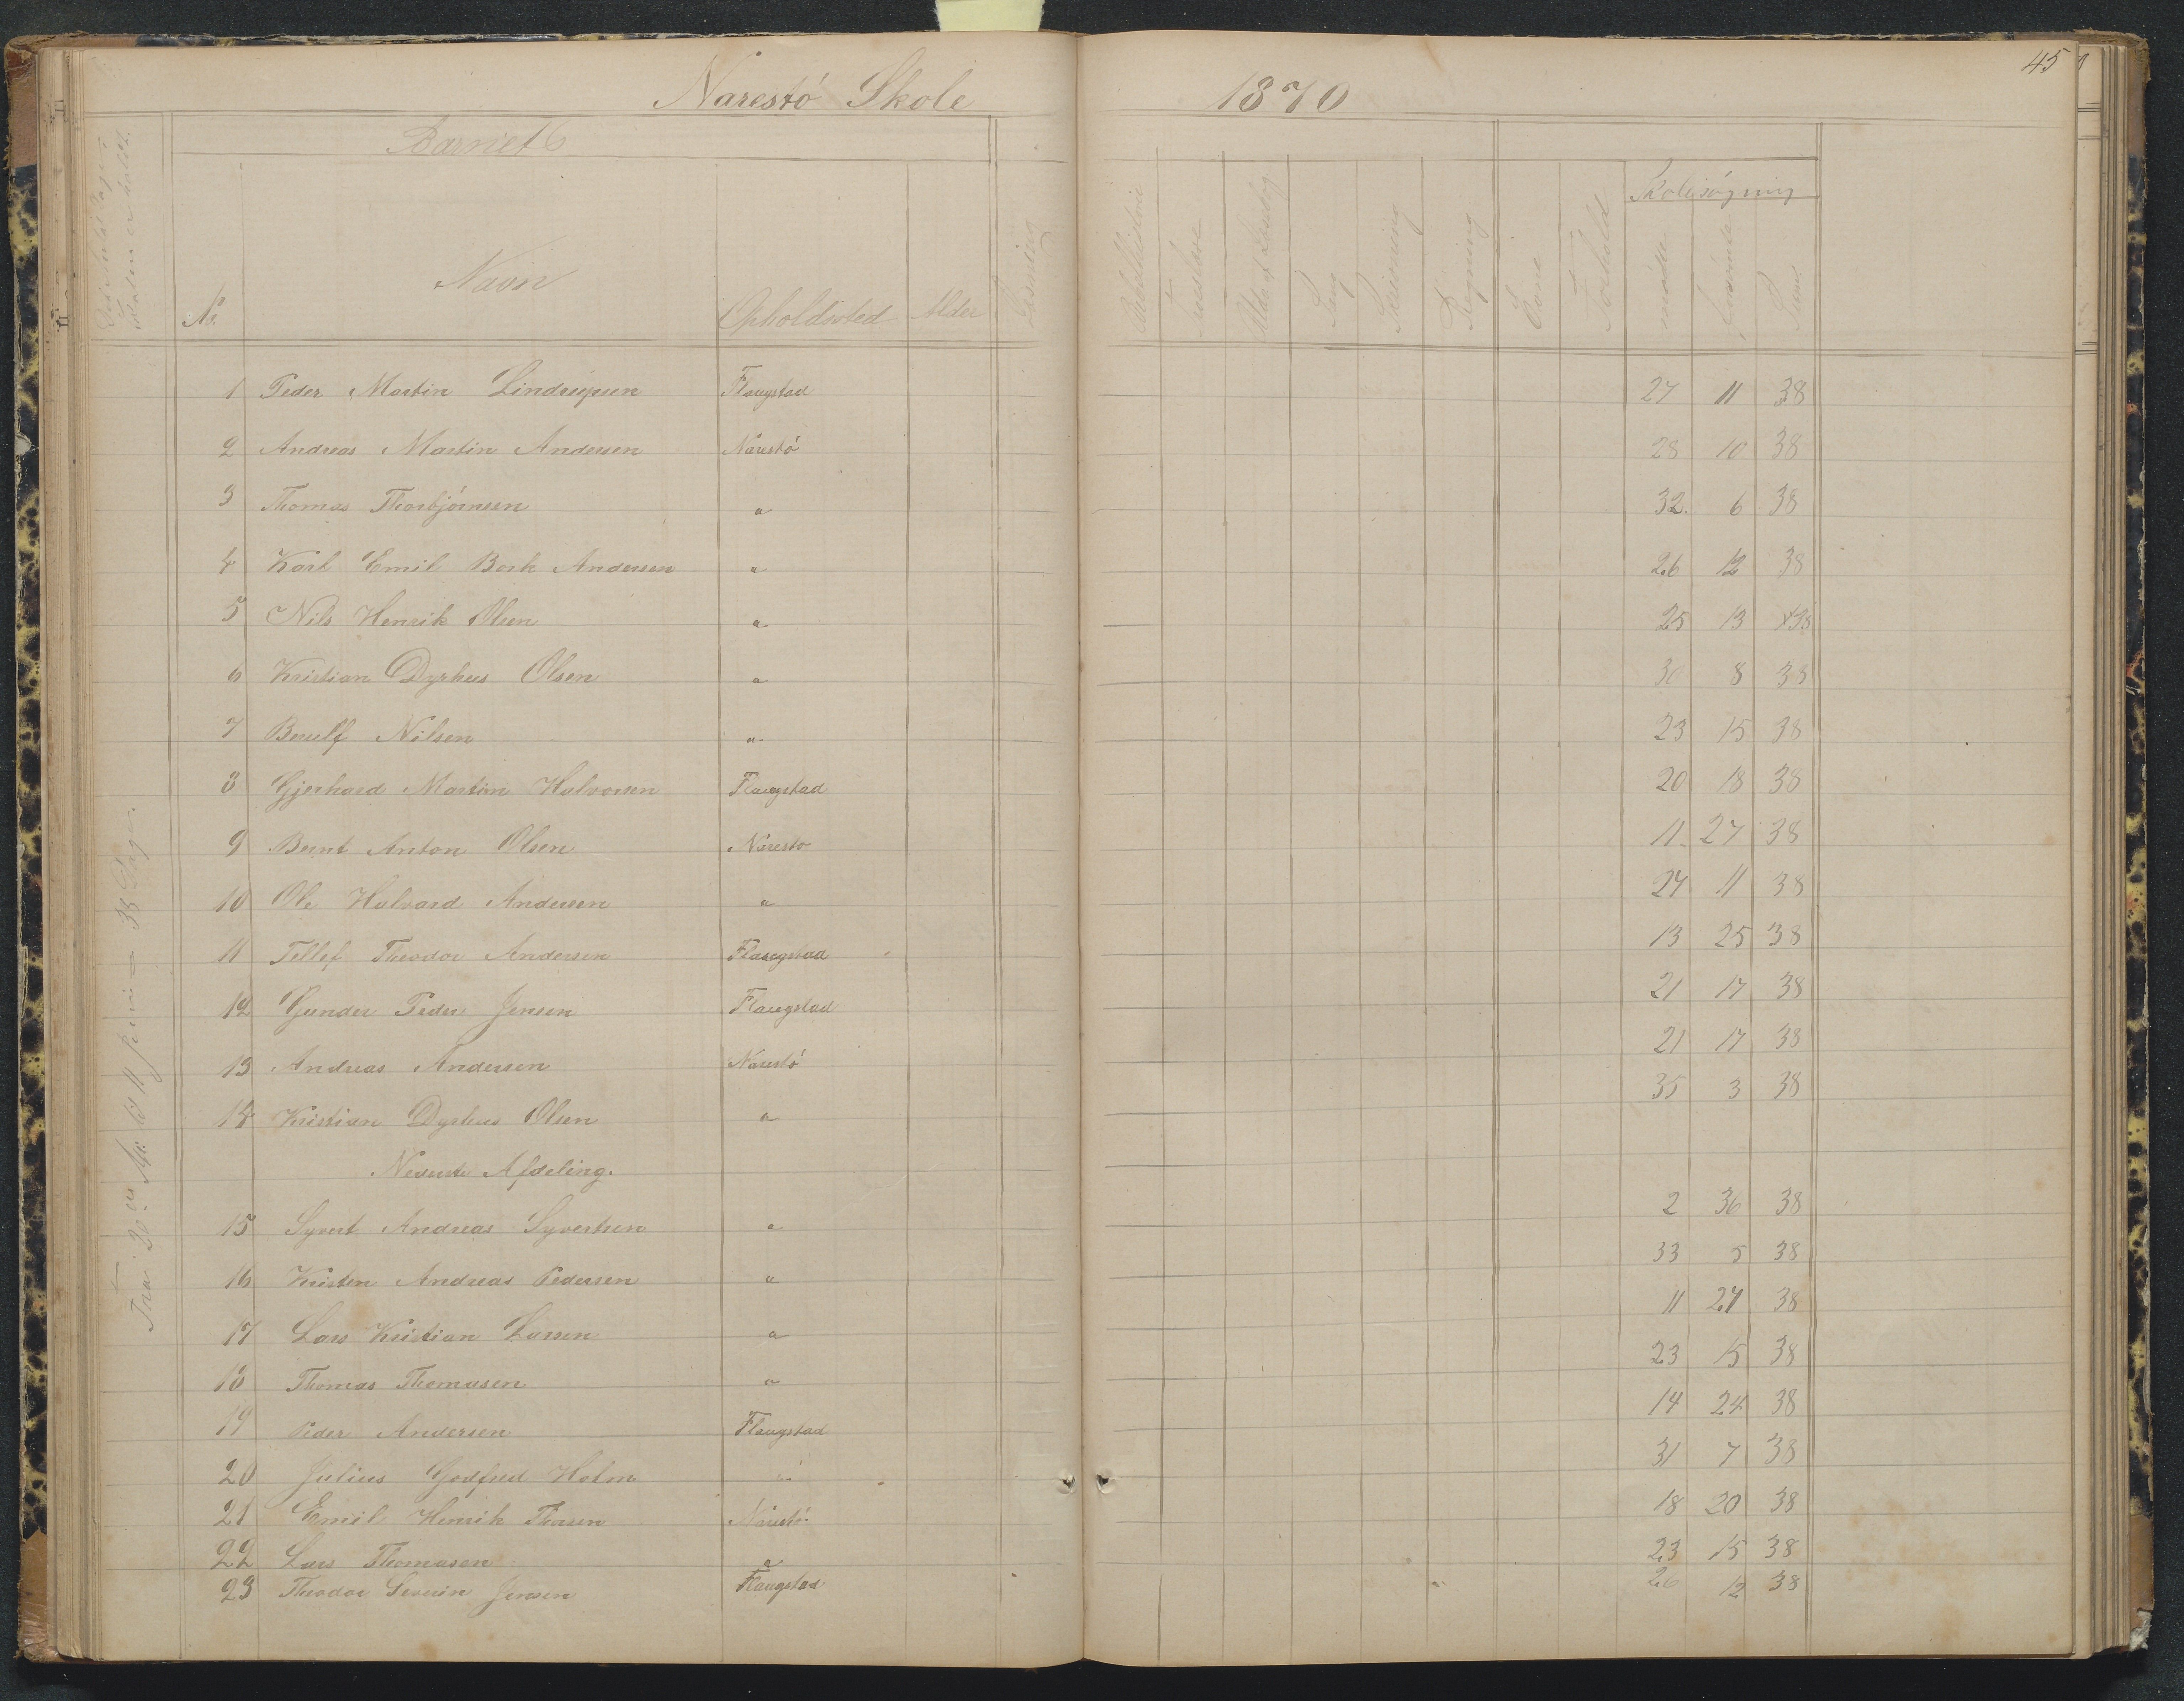 Narestó Skole 1870 45
Barnets
Skolesøgning
No. Navn Opholdssted Alder Læsning Bibelhistorie Troeslære Udv. af Læsebog Sang Skrivning Regning Evne Forhold mødte forsømte Sum
1 Peder Martin Flaugstad 27 11 38
2 Andreas Martin Andersen Narestó 28 10 38
3 Thomas Thorbjörnsen " 32 6 38
4 Karl Emil Bork Andersen " 26 12 38
5 Nils Henrik Olsen " 25 13 38
6 Kristian Dyrhus Olsen " 30 8 38
7 Berulf Nilsen " 23 15 38
8 Gjerhard Martin Halvorsen Flaugstad 20 18 38
9 Bernt Anton Olsen Naresto 11 27 38
10 Ole Halvard Andersen " 27 11 38
11 Tellef Theodor Andersen Flaugstad 13 25 38
12 Gunder Peder Jensen Flaugstad 21 17 38
13 Andreas Andersen Narestó 21 17 38
14 Kristian Dyrhus Olsen " 35 3 38
Nederste Afdeling.
15 Syvert Andreas Syvertsen " 2 36 38
16 Kristen Andreas Pedersen " 33 5 38
17 Lars Kristian Larsen " 11 27 38
18 Thomas Thomasen " 23 15 38
19 Peder Andersen Flaugstad 14 24 38
20 Julius Godfred Holm " 31 7 38
21 Emil Henrik Narestó 18 20 38
22 Lars Thomasen " 23 15 38
23 Theodor Severin Jensen Flaugstad 26 12 38
Fra 20de til 11 Juni = 38 Dage.